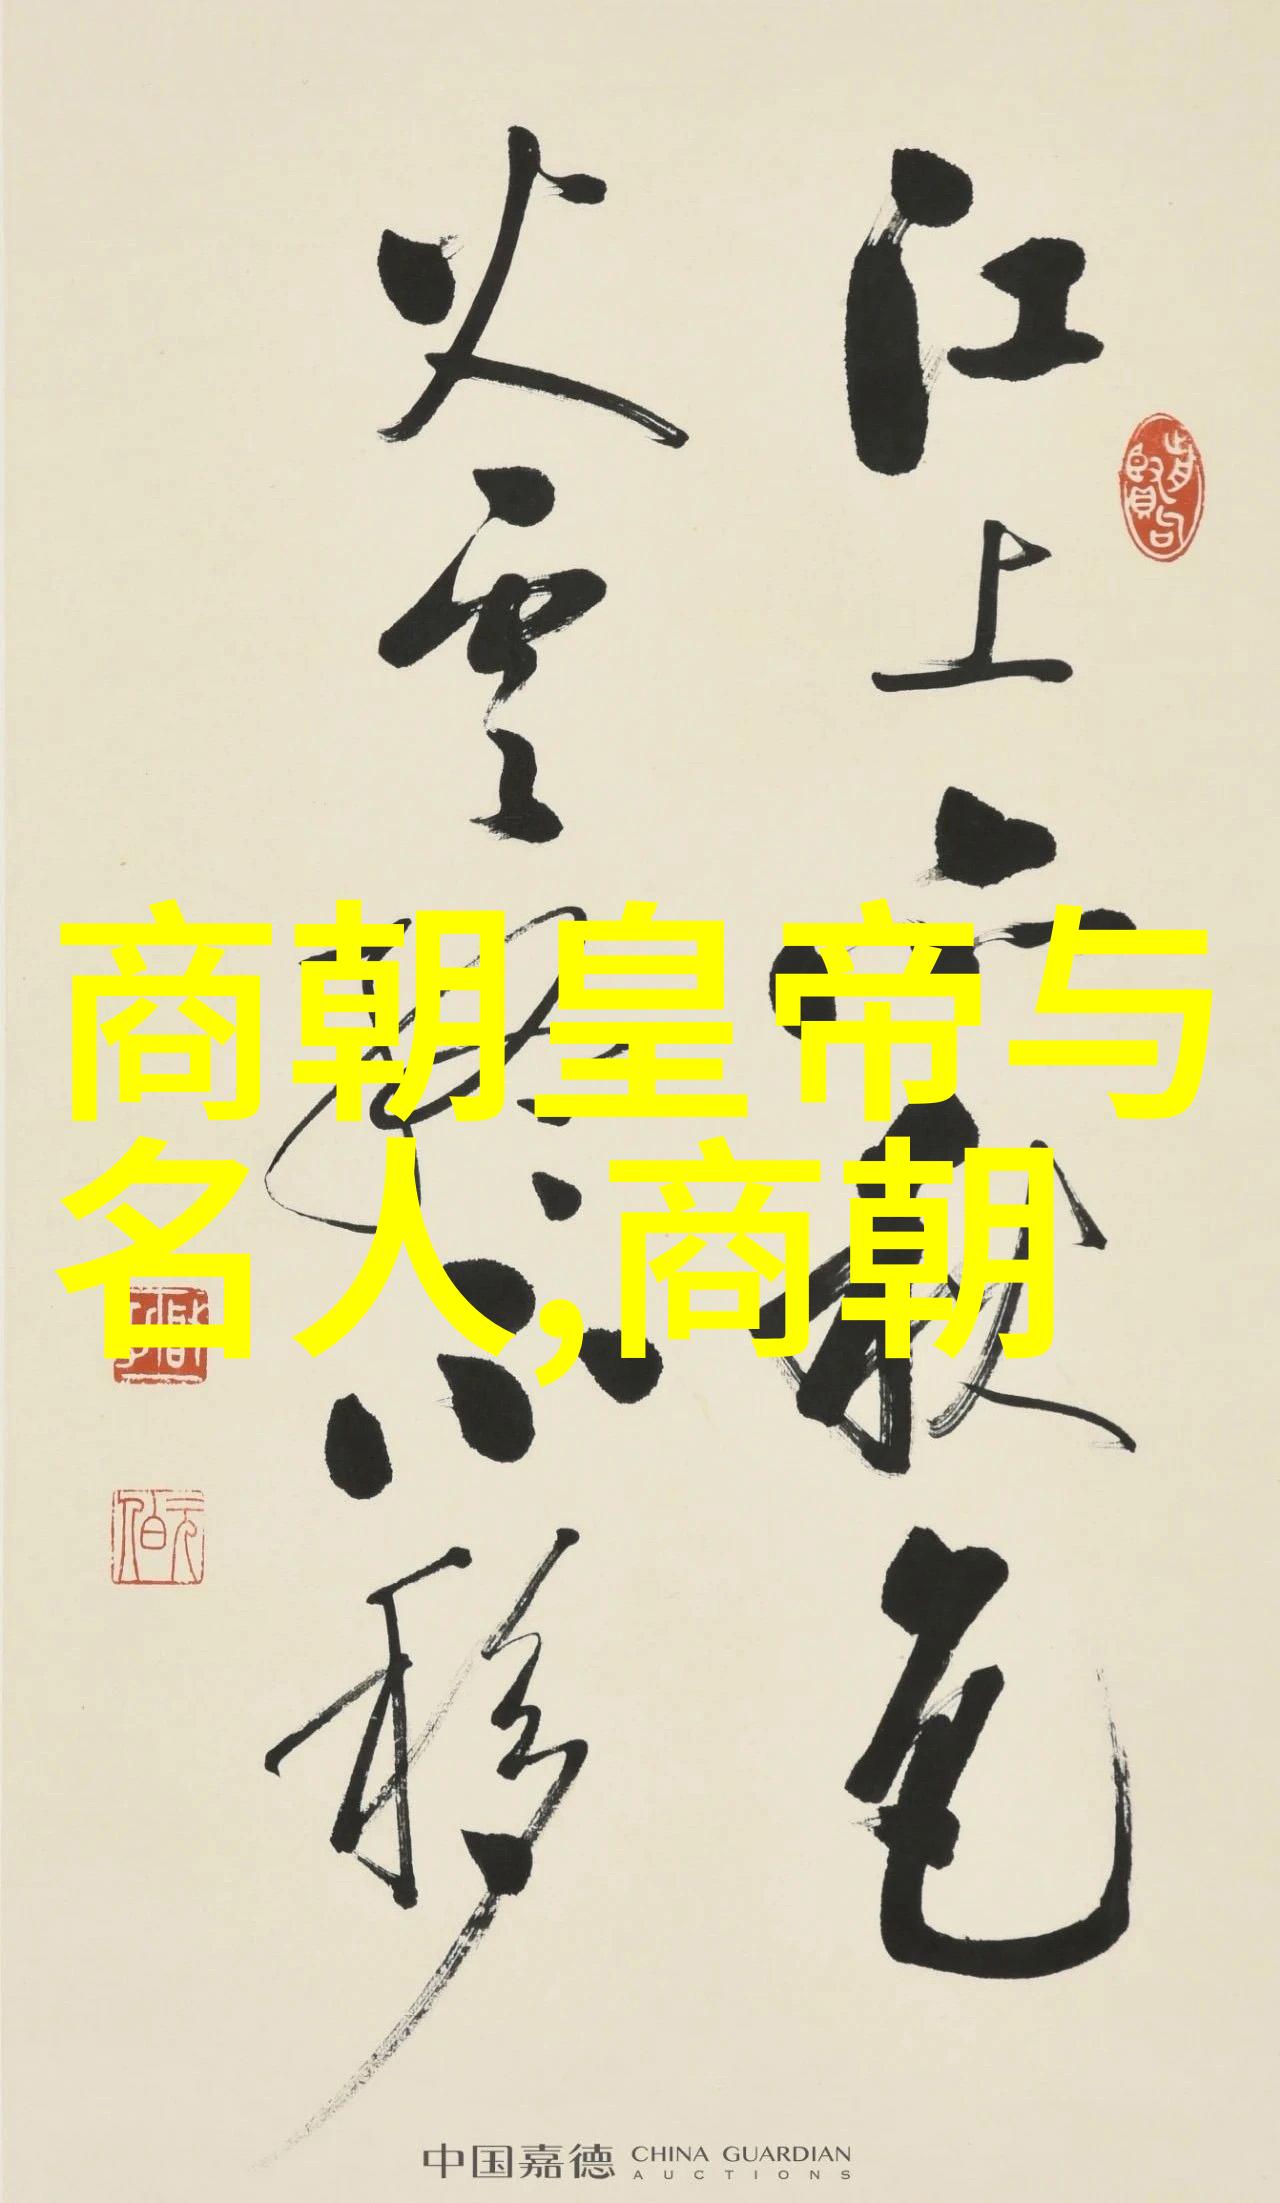 江上亦秋色
火雲終不移
商朝皇帝与
名人,商朝
元伯
中国嘉德 CHINA GUARDIAN
AUCTIONS